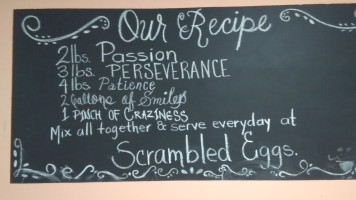 Our Recipe
2lbs. Passion
3 lbs. PERSEVERANCE
4 lbs. Patience
2 Gallons of Smiles
1 PINCH OF CRAZINESS
Mix all together & serve everyday at
Scrambled Eggs.